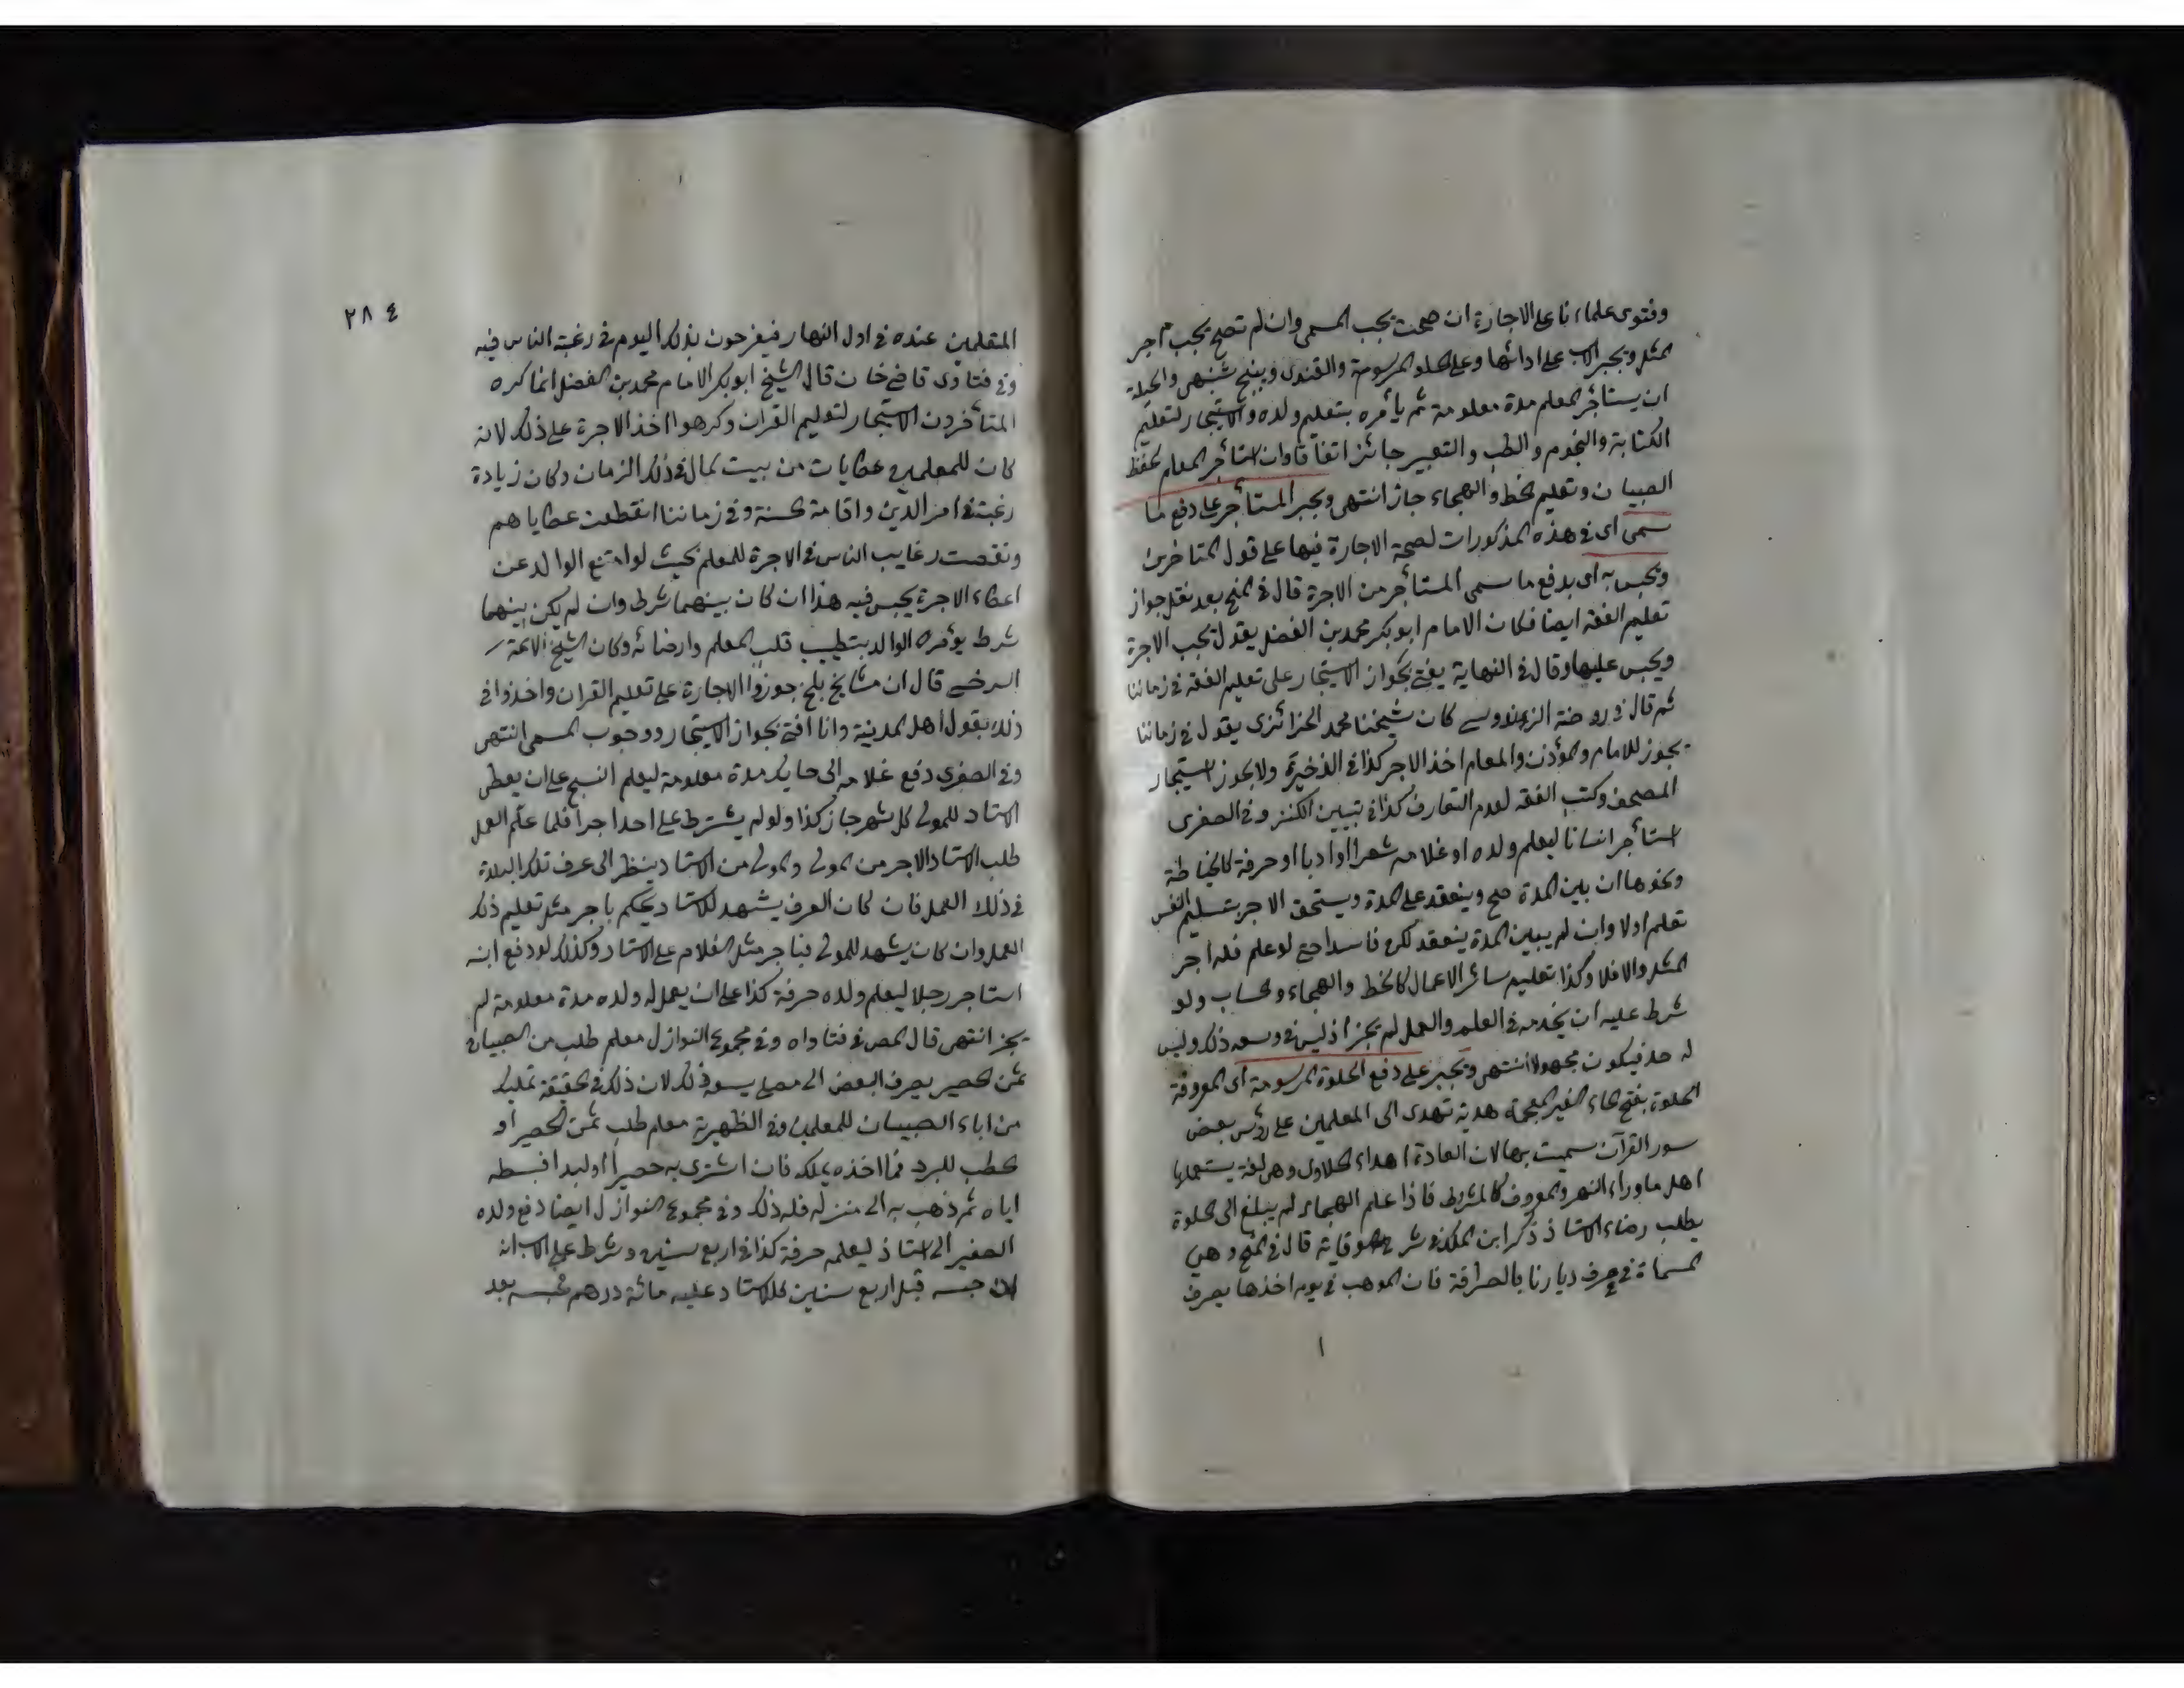 وفتوى علماءنا على الاجارة ان صحت يجب المسمى وان لم تصح يجب اجر
المثل ويجبر الاب على ادائها وعلى الحلو المرسومة والفتوى انتهى والحيلة
ان يستأجر المعلم مدة معلومة ثم يأمره بتعليم ولده والاستيجار لتعليم
الكتابة والنجوم والطب والتعبير جائز اتفاقا وان استأجر المعلم لحفظ
الصبيان وتعليم الخط والهجاء جاز انتهى ويجبر المستأجر على دفع ما
سمى اى فى هذه المذكورات لصحة الاجارة فيها على قول المتاخرين
ويحبس به اى بدفع ما سمى المستأجر من الاجرة قال فى المنح بعد نقل جواز
تعليم الفقه ايضا فكان الامام ابو بكر محمد بن الفضل يقول تجب الاجرة
ويحبس عليها وقال فى النهاية يفتى بجواز الاستيجار على تعليم الفقه فى زماننا
ثم قال وروضة الزندوسى كان شيخنا محمد الخزائزى يقول فى زماننا
يجوز للامام والمؤذن والمعلم اخذ الاجر كذا فى الذخيرة ولا يجوز استيجار
المصحف وكتب الفقه لعدم التعارف كذا فى تبيين الكنز وفى الصغرى
استأجر انسانا ليعلم ولده او غلامه شعرا او ادبا او حرفة كالخياطة
ونحوها ان بين المدة صح وينعقد على المدة ويستحق الاجر بتسليم النفس
تعلم اولا وان لم يبين المدة ينعقد لكن فاسدا حتى لو علم فله اجر
المثل والا فلا وكذا تعليم سائر الاعمال كالخط والهجاء والحساب ولو
شرط عليه ان يخدمه فى العلم والعمل لم يجز اذ ليس فى وسعه ذلك وليس
له حد فيكون مجهولا انتهى ويجبر على دفع الحلوة المرسومة اى المعروفة
الحلوة بفتح الحاء الغير المعجمة هدية تهدى الى المعلمين على رؤس بعض
سور القرآن سميت بها لان العادة اهداء الحلاوى وهى لغة يستعملها
اهل ماوراء النهر والمعروف كالمشروط فاذا علم الهجاء لم يبلغ الى الحلوة
يطلب رضاء الاستاذ ذكر ابن الملك فى شرح الوقاية قال فى المنح وهى
المسماة فى عرف ديارنا بالصرافة فان الموهب فى يوم اخذها يصرف
٢٨٤
المتعلمين عنده فى اول النهار فيفرحون بذلك اليوم فى رغبة الناس فيه
وفى فتاوى قاضى خان قال الشيخ ابو بكر الامام محمد بن الفضل انما كره
المتأخرون الاستيجار لتعليم القران وكرهوا اخذ الاجرة على ذلك لانه
كان للمعلمين عطايات من بيت المال فى ذلك الزمان وكان زيادة
رغبة فى امر الدين واقامة الحسنة وفى زماننا انقطعت عطاياهم
ونقصت رغايب الناس فى الاجرة للمعلم بحيث لو امتنع الوالد عن
اعطاء الاجرة يحبس فيه هذا ان كان بينهما شرط وان لم يكن بينهما
شرط يؤمره الوالد بتطييب قلب المعلم وارضائه وكان الشيخ الائمة
السرخسى قال ان مشايخ بلخ جوزوا الاجارة على تعليم القران واخذوا فى
ذلك بقول اهل المدينة وانا افتى بجواز الاستيجار ووجوب المسمى انتهى
وفى الصغرى دفع غلامه الى حايك مدة معلومة ليعلم النسج على ان يعطى
الاستاد للمولى كل شهر جاز كذا ولو لم يشترط على احد اجرا فلما علم العمل
طلب الاستاد الاجر من المولى والمولى من الاستاد ينظر الى عرف تلك البلدة
فى ذلك العمل فان كان العرف يشهد للاستاد يحكم باجر مثل تعليم ذلك
العمل وان كان يشهد للمولى فباجر مثل الغلام على الاستاد وكذلك لو دفع ابنه
استاجر رجلا ليعلم ولده حرفة كذا على ان يعمل له ولده مدة معلومة لم
يجز انتهى قال المص فى فتاواه وفى مجموع النوازل معلم طلب من الصبيان
ثمن الحصير يصرف البعض الى مصلح يسعه ذلك لان ذلك فى الحقيقة تمليك
من اباء الصبيان للمعلمين وفى الظهيرية معلم طلب ثمن الحصير او
حطب للبرد فما اخذه يملكه فان اشترى به حصيرا او لبدا فبسطه
اياه ثم ذهب به الى منزله فله ذلك وفى مجموع النوازل ايضا دفع ولده
الصغير الى استاذ ليعلمه حرفة كذا فى اربع سنين وشرط على الاب انه
ان حبسه قبل اربع سنين للاستاد عليه مائة درهم فحبسه بعد